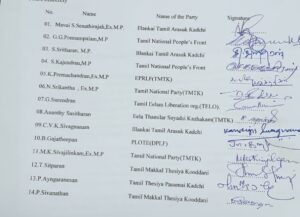 No Name Name of the Party Signature
01. Mavai S.Senathirajah,Ex.M.P Illankai Tamil Arasuk Kadchi
02. G.G.Ponnampalam,M.P Tamil National People's Front
03. S.Sritharan, M.P Illankai Tamil Arasuk Kadchi
04. S.Kajendran,M.P Tamil National People's Front
05. K.Premachandran,Ex.M.P EPRLF(TMTK)
06.N.Srikantha , Ex.M.P Tamil National Party(TMTK)
07.G.Surendran Tamil Eelam Liberation org.(TELO)
08.Ananthy Sasitharan Eela Thamilar Suyadsi Kazhakam(TMTK)
09.C.V.K.Sivagnanam Illankai Tamil Arasuk Kadchi
10.B.Gajatheepan PLOTE(DPLF)
11.M.K.Sivajilinkam,Ex.M.P Tamil National Party(TMTK)
12.T.Sitparan Tamil Makkal Thesiya Kooddani
13.P.Ayngaranesan Tamil Thesiya Pasumai Kadchi
14.P.Sivanathan Tamil Makkal Thesiya Kooddani